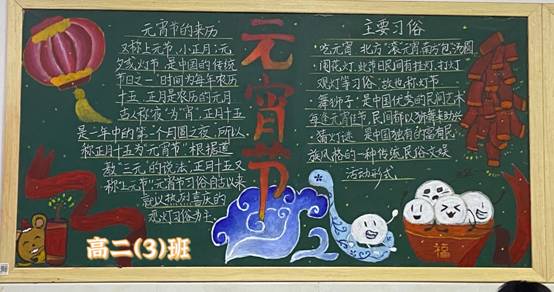 元宵节的来历
又称上元节,小正月,元
夕或灯节,是中国的传统
节日之一,时间为每年农历
十五,正月是农历的元月
古人称"夜"为"宵",正月十五
是一年中的第一个月圆之夜,所以
称正月十五为"元宵节"根据道
教"三元"的说法,正月十五又
称"上元节",元宵节习俗自古以来
就以热烈喜庆的
观灯习俗为主.
元宵节
主要习俗
·吃元宵 北方"滚"元宵南方"包"汤圆.
·闹花灯,此节日民间有挂灯,打灯
观灯等习俗,故也称灯节
·舞狮子:是中国优秀的民间艺术
每逢元宵佳节,民间都以狮舞来助兴
·猜灯谜:是中国独有的富有民
族风格的一种传统民俗文娱
活动形式
高二(3)班
福